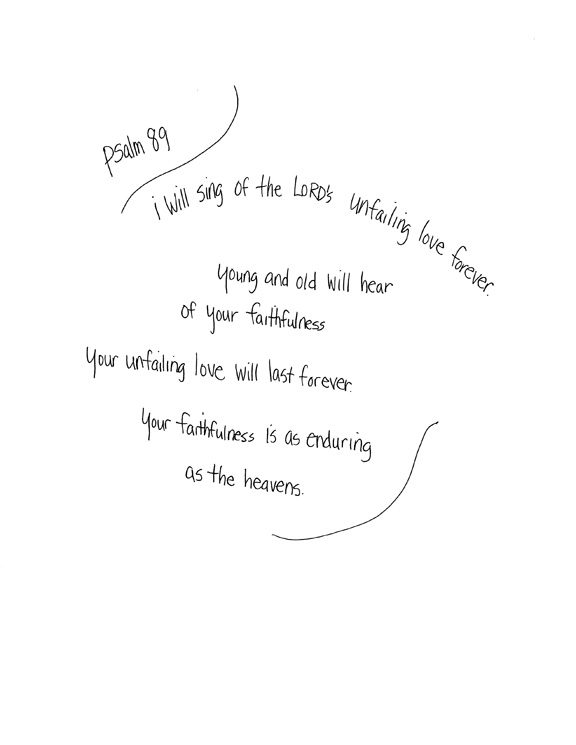 Psalm 89
i will sing of the LORD's unfailing love forever.
Young and old will hear
of your faithfulness
Your unfailing love will last forever.
Your faithfulness is as enduring
as the heavens.